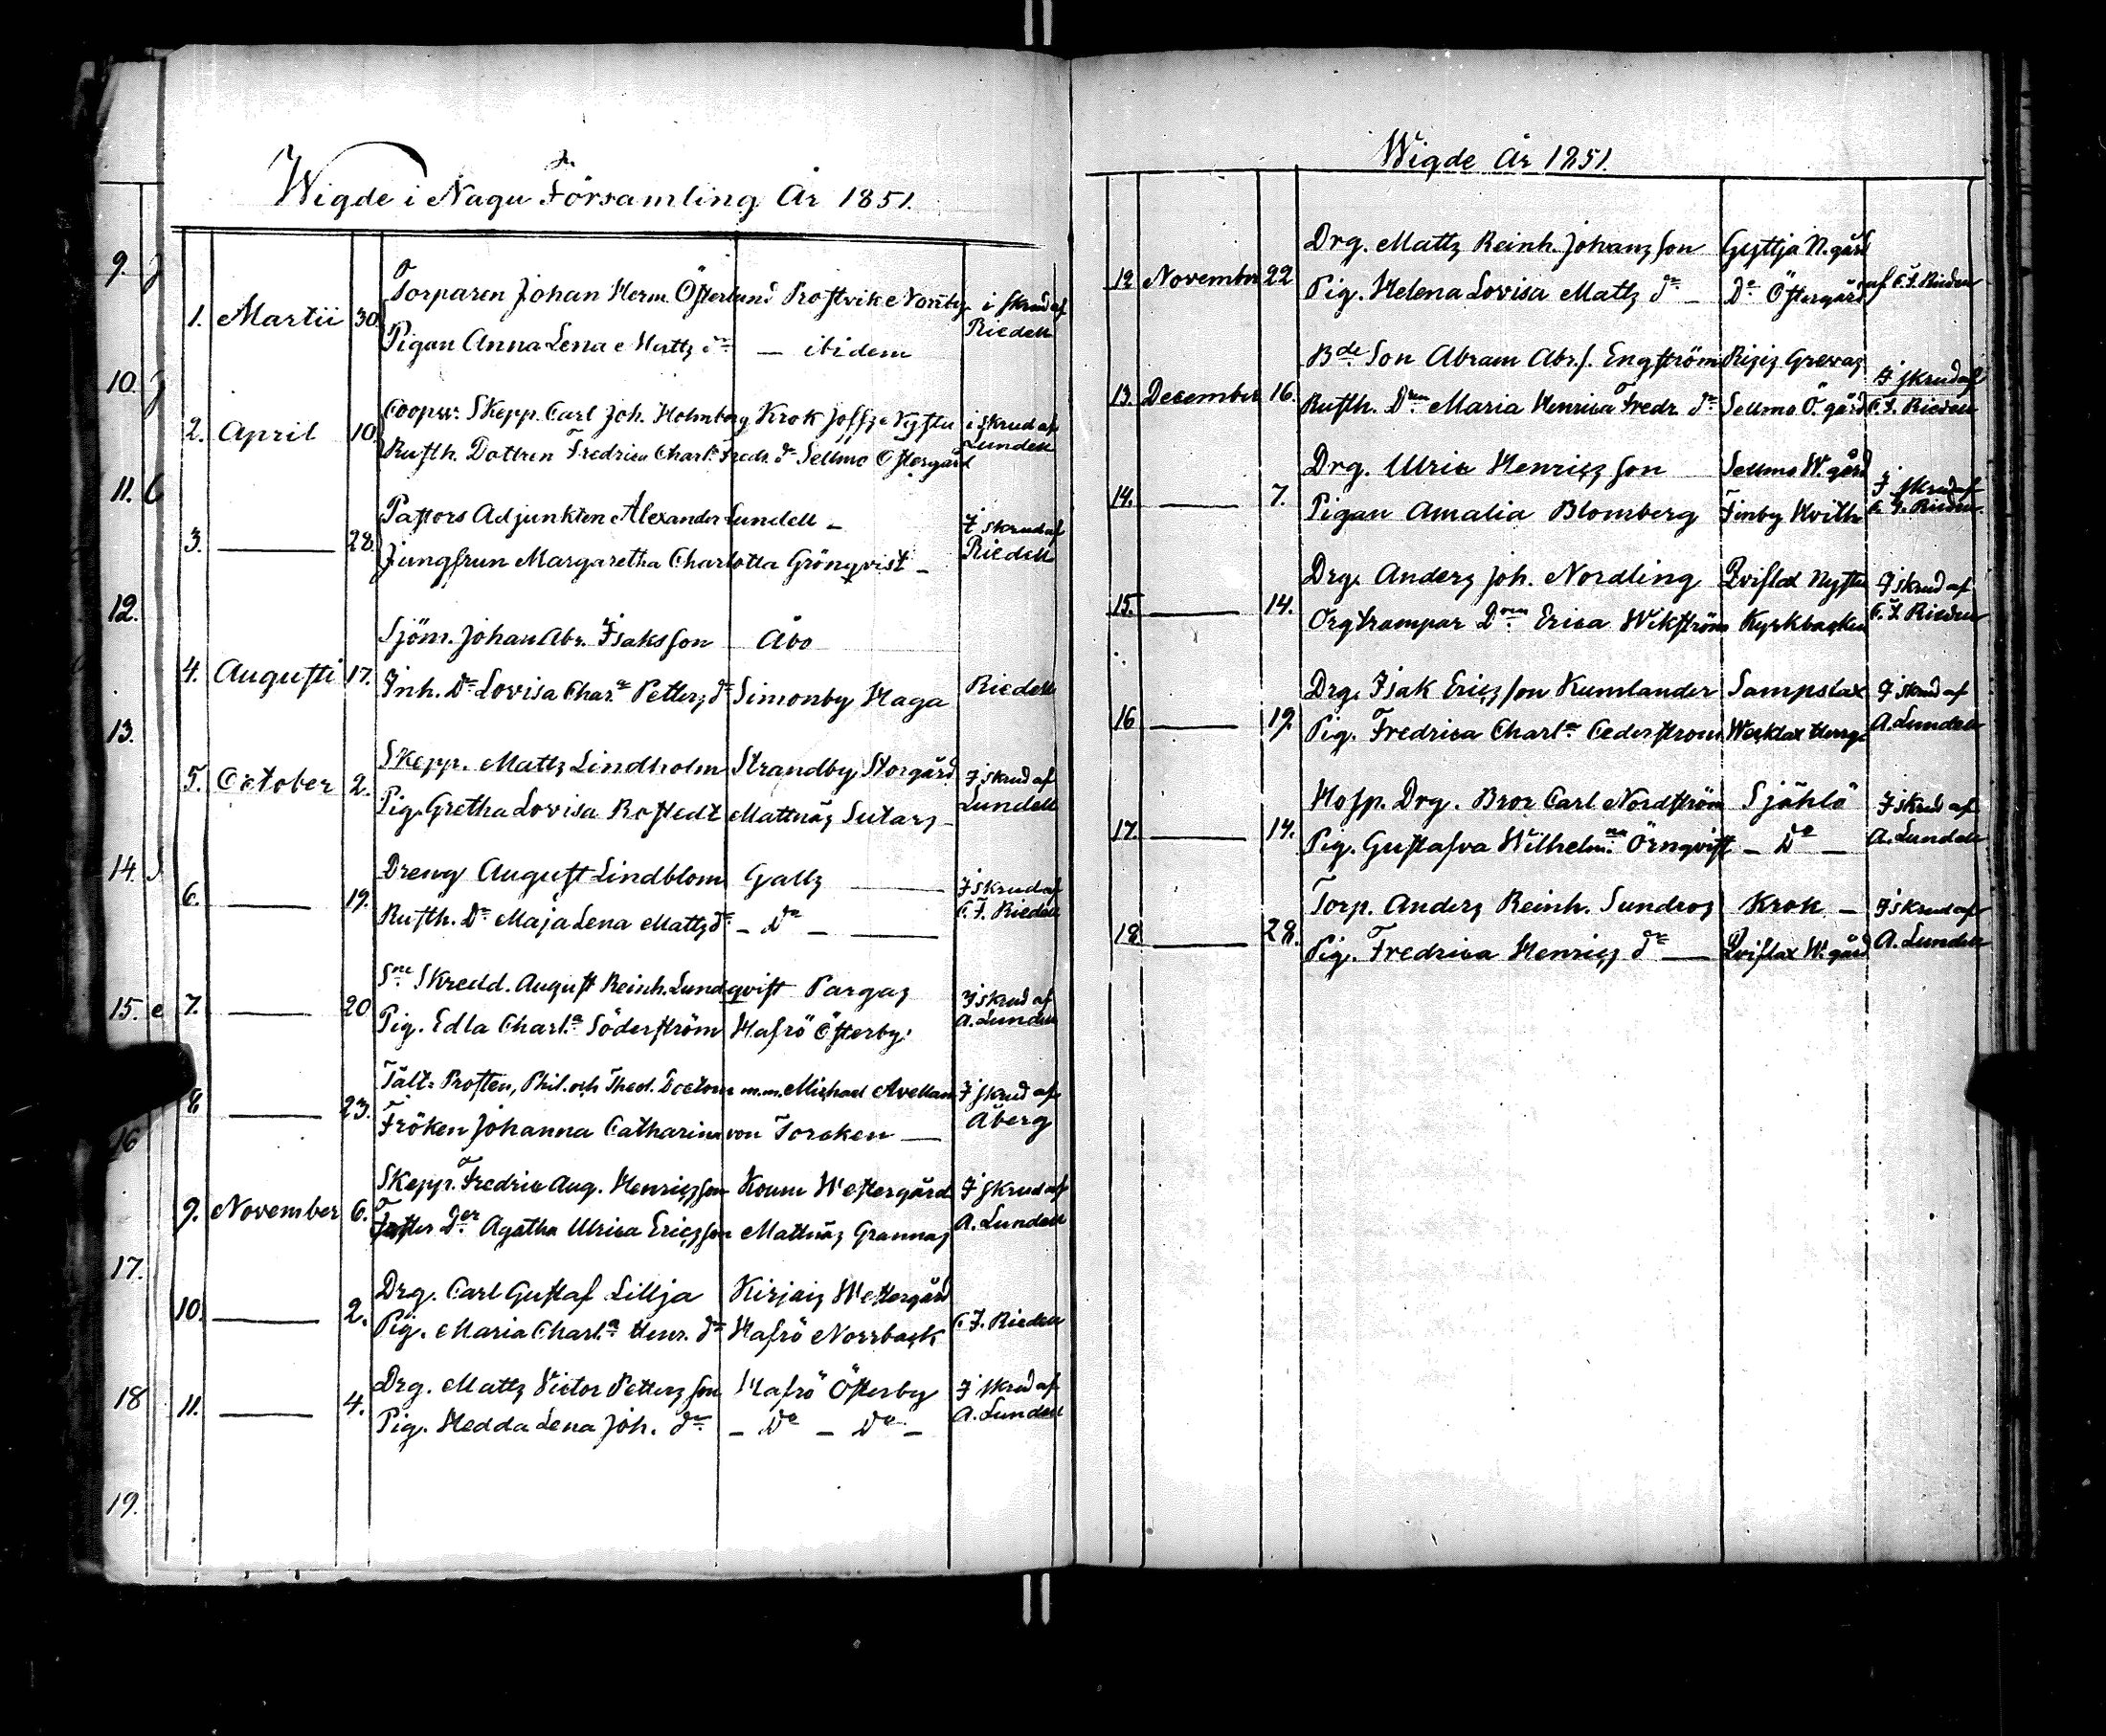 Wigde i Nagu Församling År 1851.
1. Martii 30. Torparen Johan Herm. Österlund Prostvik Norrby i skrud af
Pigan Anna Lena Mattz dr — ibidem Riedell
2. April 10. Coopv. Skepp. Carl Joh. Holmberg Krok Joffs Nystu i skrud af
Rusth. Dottren Fredrica Charl. Fredr. dr Sellmo Östergård Lundell
3. — 28. Pastors Adjunkten Alexander Lundell — I skrud af
Jungfrun Margaretha Charlotta Grönqvist — Riedell
4. Augusti 17. Sjöm. Johan Abr. Isaksson Åbo
Inh. Dr Lovisa Char.a Petterz dr Simonby Haga Riedell
5. October 2. Skepp. Mattz Lindholm Strandby Storgård I skrud af
Pig. Gretha Lovisa Rostedt Mattnäs Sutarz — Lundell
6. — 19. Dreng August Lindblom Galtz — I skrud af
Rusth. Dr Maja Lena Mattz dr — Do — C. F. Riedell
7. — 20 Sne Skredd. August Reinh. Lundqvist Pargas I skrud af
Pig. Edla Charl.a Söderström Hafrö Österby. A. Lundell
8 — 23. Tält. Prosten, Phil. och Theol. Doctorn m.m. Michael Avellan I skrud af
Fröken Johanna Catharina von Torcken — Åberg
9. November 6. Skepp. Fredric Aug. Henricsson Koum Westergård I skrud af
Foster Der Agatha Ulrica Ericsson Mattnäs Grannas A. Lundell
10. — 2. Drg. Carl Gustaf Lillja Kirjais Westergård
Pig. Maria Charl.a Henr. dr Hafrö Norrback C. F. Riedell
11. — 4. Drg. Mattz Victor Petterz son Hafrö Österby I skrud af
Pig. Hedda Lena Joh. dr — Do — Do — A. Lundell
Wigde År 1851.
12 November 22 Drg. Mattz Reinh. Johanz son Gyttja N. gård
Pig. Helena Lovisa Mattz dr — Do Östergård af C. F. Riedell
13. December 16. Bde Son Abram Abr. s. Engström Risis Grevas I skrud af
Rusth. Dren Maria Henrica Fredr. dr Sellmo Ö. gård C. F. Riedell
14. — 7. Drg. Ulric Henricz son Sellmo W. gård I skrud af
Pigan Amalia Blomberg Finby C. F. Riedell
15. — 14. Drg. Anders Joh. Nordling Qvislax Nystu I skrud af
Orgtrampar Dren Erica Wikström Kyrkbacken C. F. Riedell
16 — 19 Drg. Isak Ericz son Kumlander Sampslax I skrud af
Pig. Fredrica Charl.a Cederström A. Lundell
17. — 14. Hosp. Drg. Bror Carl Nordström Själö I skrud af
Pig. Gustafva Wilhelm.na Örnqvist — Do — A. Lundell
18 — 28. Torp. Anders Reinh. Sundros Krok — I skrud af
Pig. Fredrica Henricz dr — Qvislax W. gård A. Lundell
9.
10.
11.
12.
13.
14.
15.
16
17.
18
19.